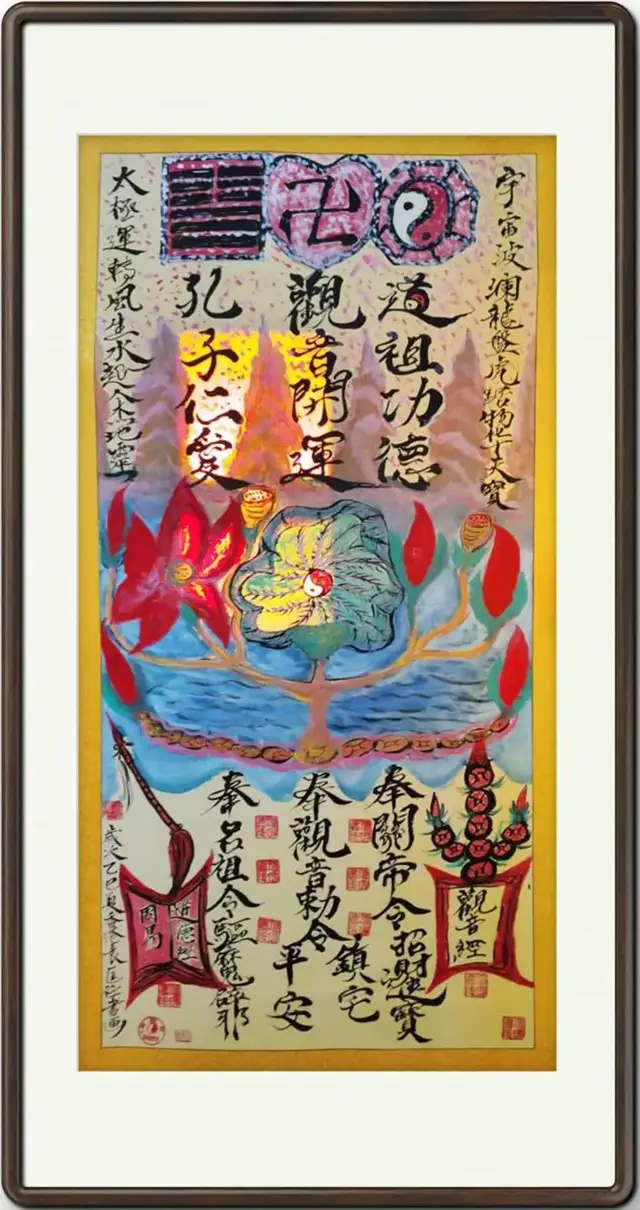 宇宙波瀾龍盤虎踞物华天寶
道祖功德
觀音開運
孔子仁愛
太極運轉風生水起人杰地靈
觀音經
奉關帝令招財進寶
奉觀音勅令鎮宅
平安
奉呂祖令驅魔辟邪
道德經
周易
歲次乙巳夏
書画